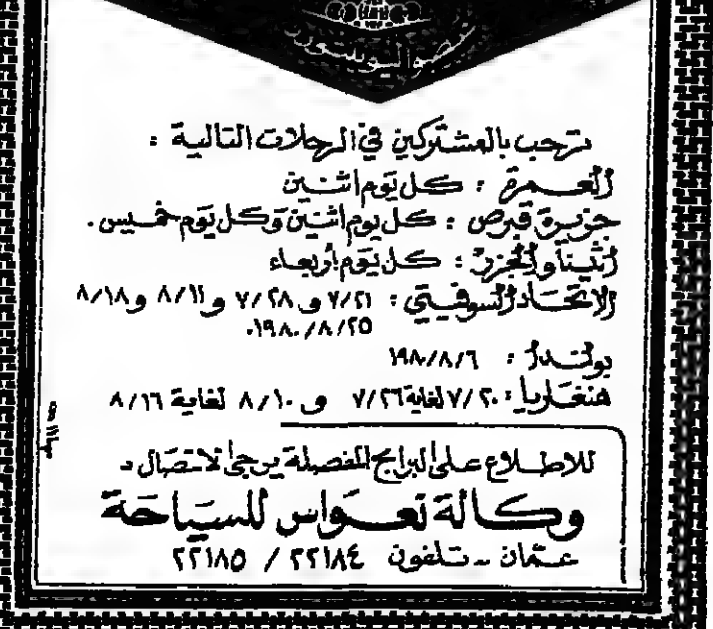 ترحب بالمشتركين في الرحلات التالية :
العمرة : كل يوم اثنين
جزيرة قبرص : كل يوم اثنين وكل يوم خميس .
أثينا والجزر : كل يوم أربعاء
الاتحاد السوفيتي : ٧/٢١ و ٧/٢٨ و ٨/١١ و ٨/١٨
١٩٨٠/٨/٢٥.
بولندا : ١٩٨٠/٨/٦
هنغاريا : ٧/٢٠ لغاية ٧/٢٦ و ٨/١٠ لغاية ٨/١٦
للاطلاع على البرامج المفصلة يرجى الاتصال بـ
وكالة نعواس للسياحة
عمّان - تلفون ٢٢١٨٤ / ٢٢١٨٥